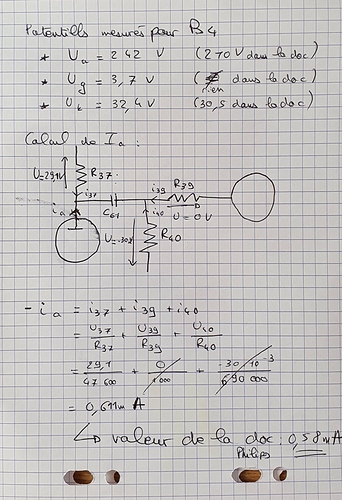 Potentiels mesurés pour B4
* Ua = 242 V (270V dans la doc)
* Ug = 3,7 V (rien dans la doc)
* Uk = 32,4 V (30,5 dans la doc)
Calcul de Ia :
U=29,1V
R37
i37
i39
R39
ia
C61
i40
U = 0V
R40
- ia = i37 + i39 + i40
= U37/R37 + U39/R39 + U40/R40
= 29,1/47 600 + 0/1000 + -30 10^-3/690 000
= 0,611m A
↳ valeur de la doc : 0,58mA
Philips